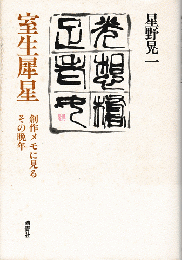 星野晃一
室生犀星
創作メモに見る
その晩年
踏青社